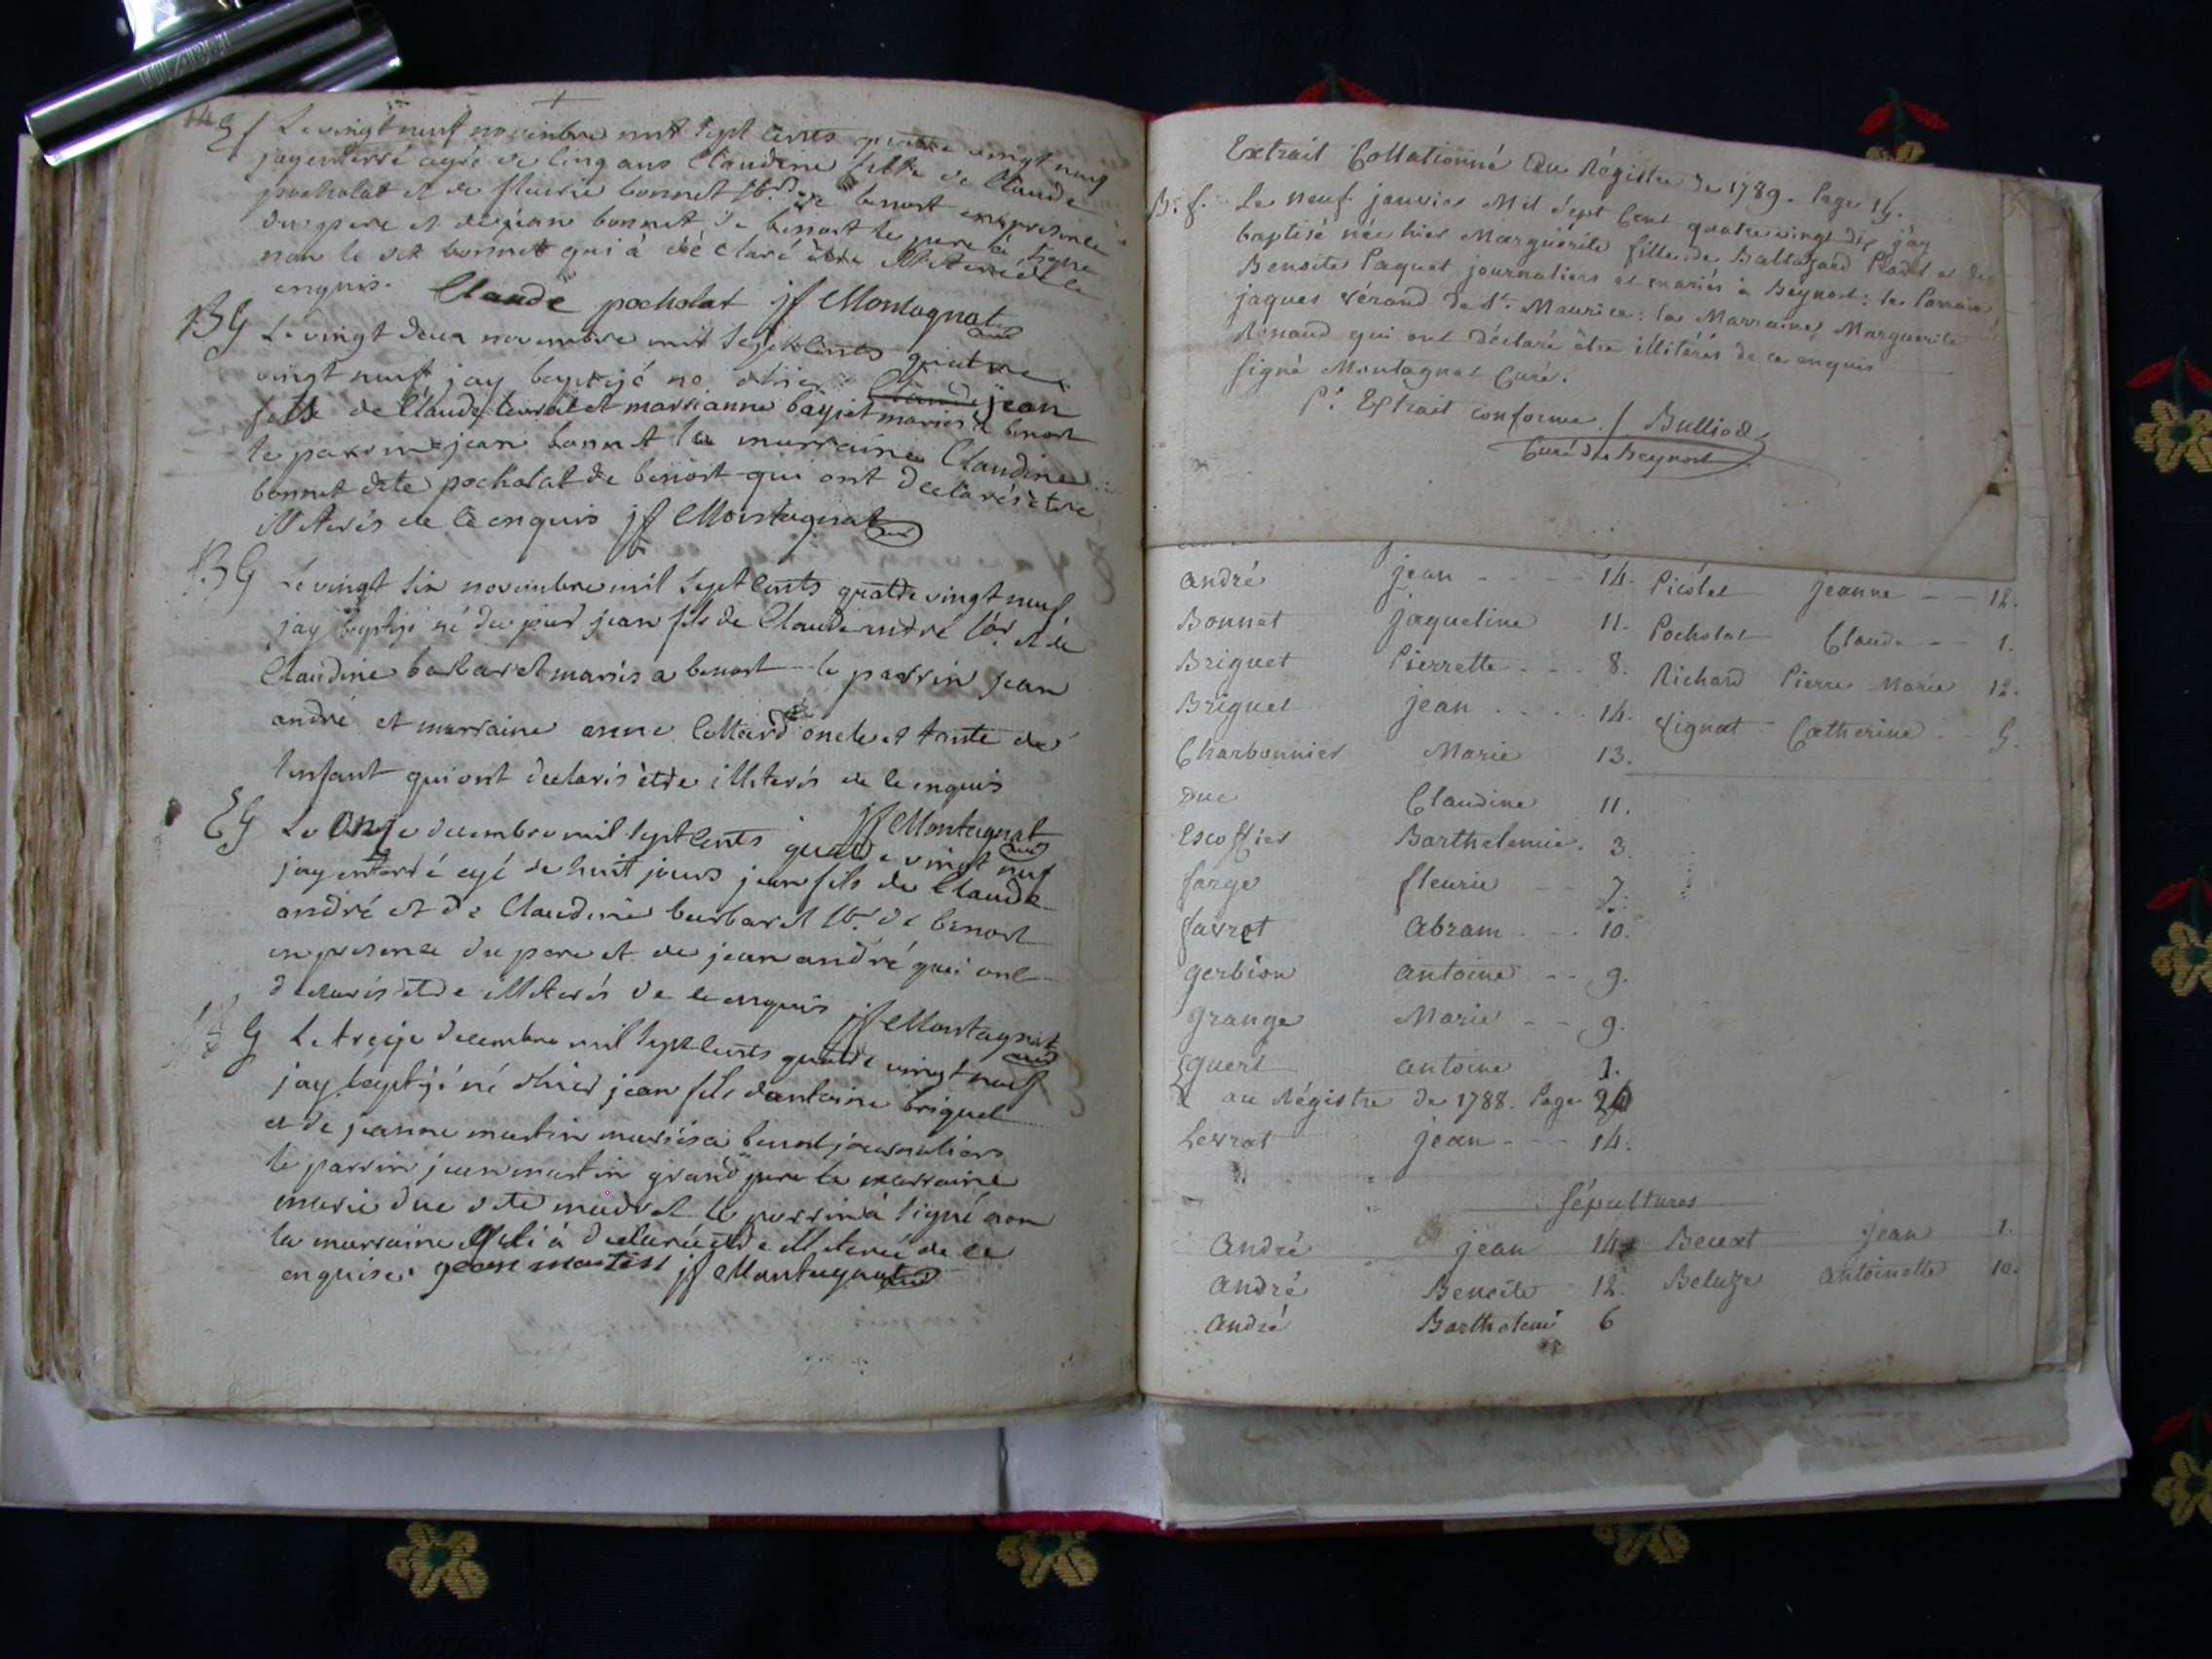 14
E f Le vingt neuf novembre mil sept cents quatre vingt neuf
jay enterré agée de cinq ans Claudine fille de Claude
pocholat et de fleurie bonnet de benost en presence
du pere et de jean bonnet de benost le pere a signé
non le dit bonnet qui à déclaré être illiteré de ce
enquis. Claude pocholat jf Montagnat curé
B G Le vingt deux novembre mil sept cents quatre
vingt neuf jay baptisé né d'hier jean
fils de Claude levrat et marianne bajet mariés a benost
le parrin jean bonnet la marraine Claudine
bonnet dite pocholat de benost qui ont declarés etre
illiterés de ce enquis jf Montagnat curé
B G Le vingt six novembre mil sept cents quatre vingt neuf
jay baptisé né du jour jean fils de Claude andré et de
Claudine barbaret mariés a benost le parrin jean
andré et marraine anne Collard oncle et tante de
l'enfant qui ont declarés etre illiterés de ce enquis
jf Montagnat curé
E G Le onze decembre mil sept cents quatre vingt neuf
jay enterré agé de huit jours jean fils de Claude
andré et de Claudine barbaret de benost
en presence du pere et de jean andré qui ont
declarés etre illiterés de ce enquis jf Montagnat curé
B G Le treize decembre mil sept cents quatre vingt neuf
jay baptisé né d'hier jean fils dantoine briguet
et de jeanne martin mariés a benost journaliers
le parrin jean martin grand pere la marraine
marie duc dite le parrin à signé non
la marraine qui à declarée etre illiterée de ce
enquise. jean martin jf Montagnat curé
Extrait Collationné du Régistre de 1789. Page 15.
B. f. Le neuf janvier Mil Sept Cent quatrevingt dix j'ay
baptisé née hier Marguérite fille de Baltazard Pradel et de
Benoite Paquet journaliers et mariés à Beynost: le Parrain
jaques Vérand de St. Maurice: la Marraine Marguerite
Renaud qui ont Déclaré être illitérés de ce enquis
signé Montagnat Curé.
Pr. Extrait conforme / Bulliod
Curé de Beynost
andré jean 14. Picolet jeanne 12.
Bonnet jaqueline 11. Pocholat Claude 1.
Briguet Pierrette 8. Richard Pierre Marie 12.
Briguet jean 14. Vignat Catherine 5.
Charbonnier Marie 13.
Duc Claudine 11.
Escoffier Barthelemie. 3.
farge fleurie 7.
favrot Abram 10.
gerbion antoine 9.
grange Marie 9.
guert antoine 1.
au Régistre de 1788. Page
Levrat jean 14.
Sépultures
André jean 14 jean 1.
André Benoite 12. Beluze antoinette 10.
André Barthelemi 6